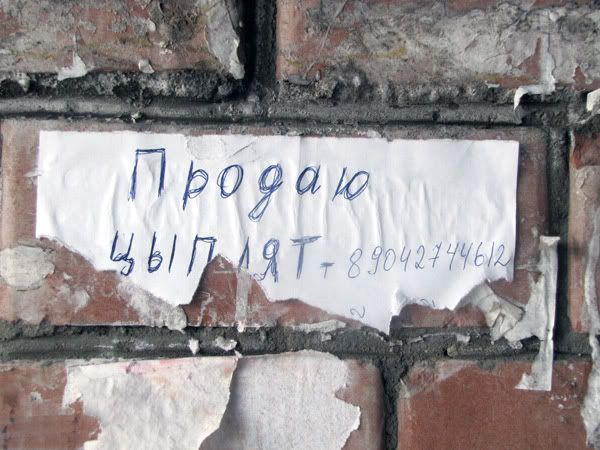 Продаю
цыплят - 89042744612